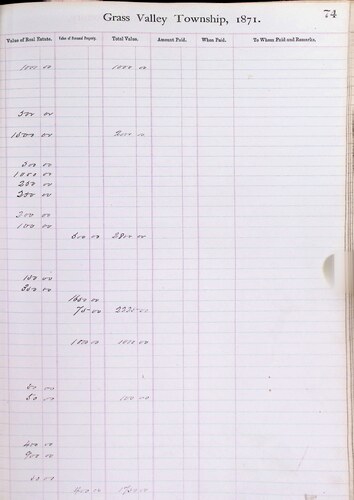 74
Grass Valley Township, 1871.
Value of Real Estate. Value of Personal Property. Total Value. Amount Paid. When Paid. To Whom Paid and Remarks.
1000 00 1000 00
500 00
1500 00 2000 00
500 00
1000 00
200 00
300 00
200 00
100 00
500 00 2800 00
100 00
500 00
1600 00
75 00 2225 00
1000 00 1000 00
50 00
50 00 100 00
400 00
900 00
00
400 00